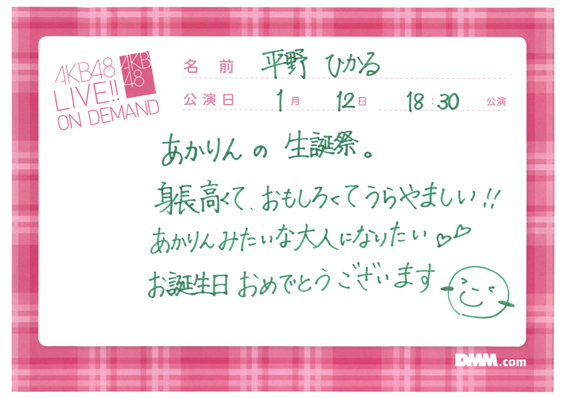 AKB48
LIVE!!
ON DEMAND
AKB
48
名前 平野 ひかる
公演日 1月 12日 18:30 公演
あかりん の 生誕祭。
身長高くて、おもしろくてうらやましい!!
あかりんみたいな大人になりたい♡♡
お誕生日おめでとうございます
DMM.com